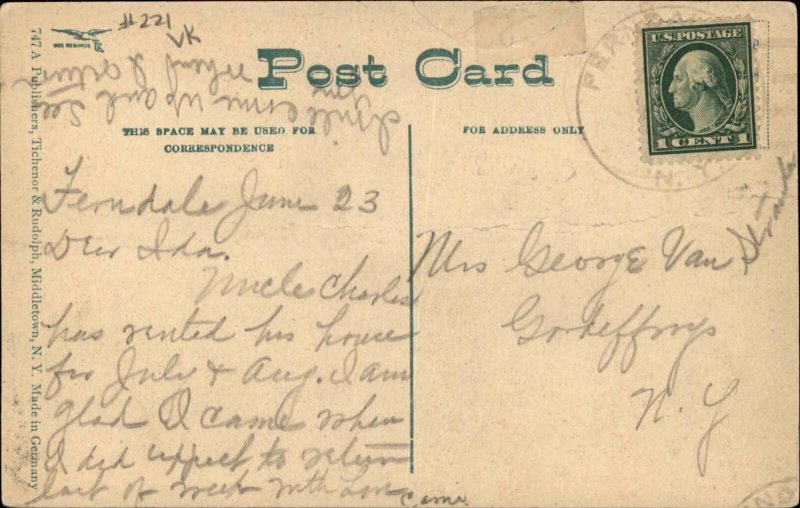 #221
VK
747 A Publishers, Tichenor & Rudolph, Middletown, N. Y. Made in Germany
Post Card
THIS SPACE MAY BE USED FOR
CORRESPONDENCE
FOR ADDRESS ONLY
U.S. POSTAGE
1 CENT 1
N. Y.
Ferndale June 23
Dear Ida.
Uncle Charles
has rented his house
for July & Aug. I am
glad I came when
I did expect to return
last of week with Love
will come up and see
when I
Mrs George Van
Godeffroys
N. Y